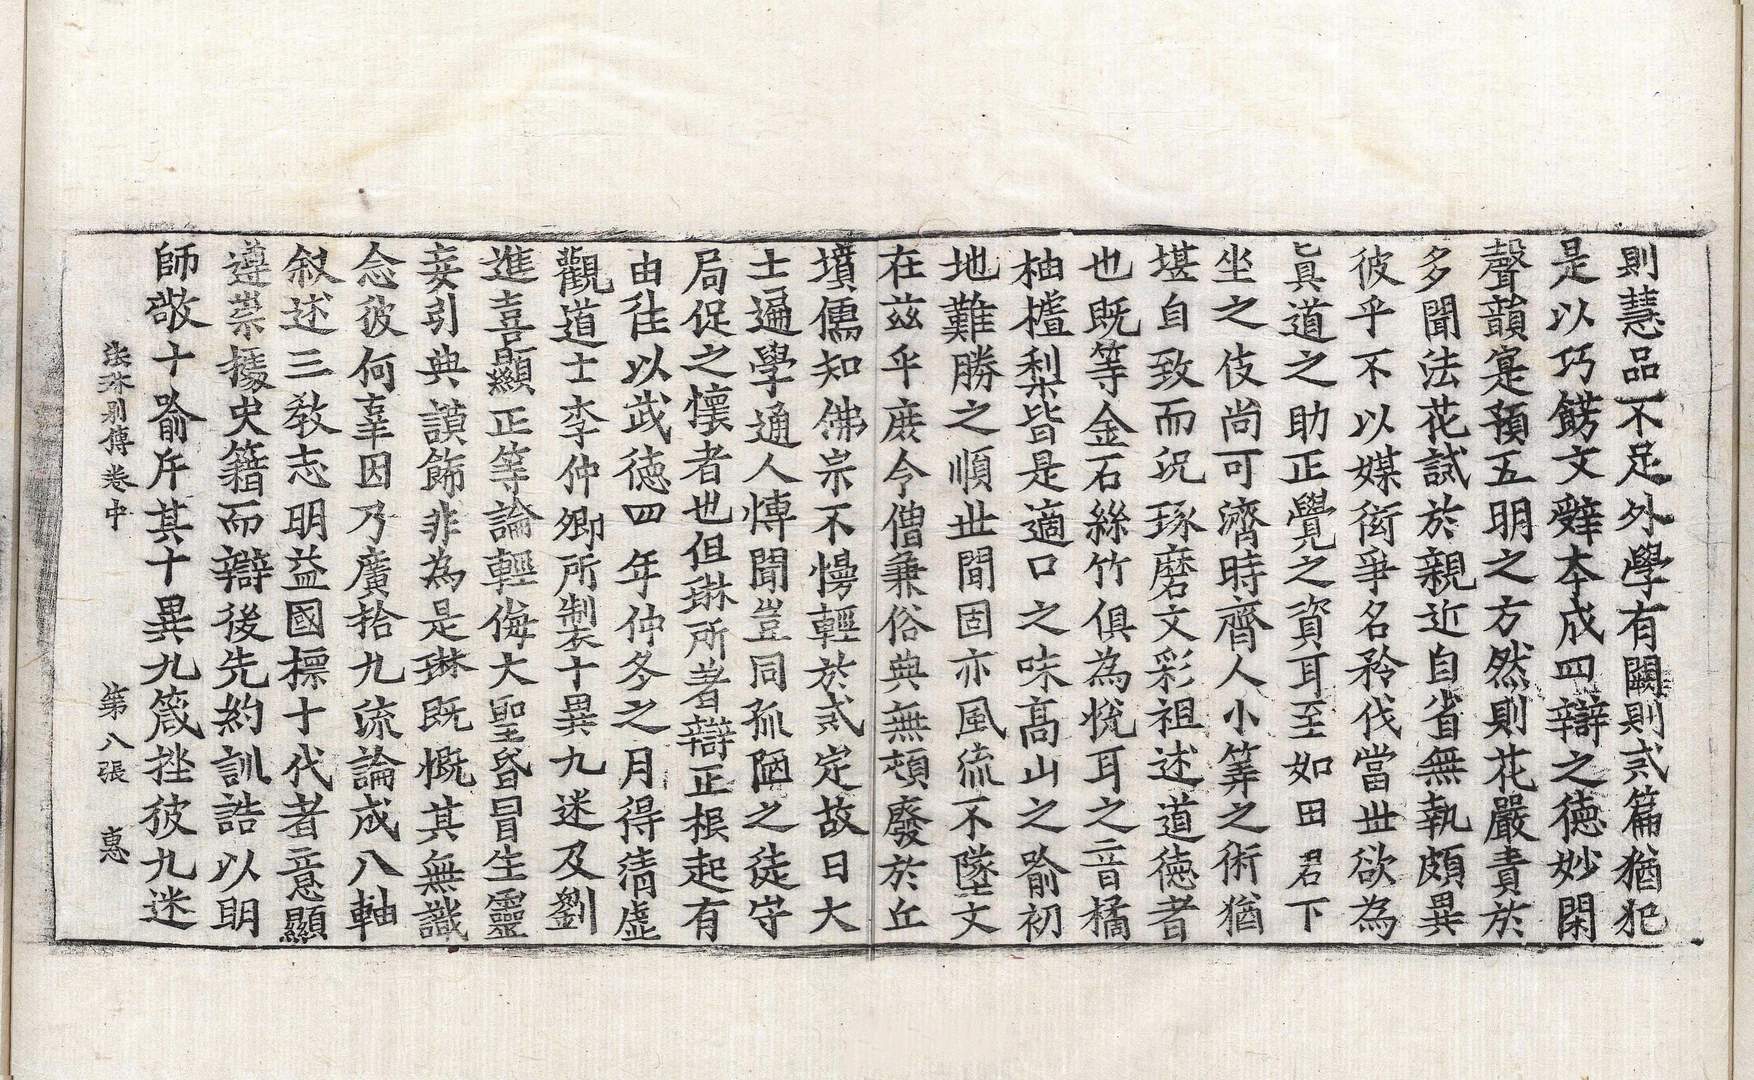 則慧品不足外學有闕則貳篇猶犯
是以巧餝文辭夲成四辯之徳妙閑
聲韻寔預五明之方然則花嚴責於
多聞法花試於親近自省無執頗異
彼乎不以媒衒爭名矜伐當世欲為
眞道之助正覺之資耳至如田君下
坐之伎尚可濟時齊人小筭之術猶
堪自致而況琢磨文彩祖述道徳者
也既等金石絲竹俱為恱耳之音橘
柚樝梨皆是適口之味髙山之喻初
地難勝之順世間固亦風流不墜文
在兹乎庶令僧兼俗典無頓廢於丘
墳儒知佛宗不慢輕於貳定故日大
士遍學通人博聞豈同孤陋之徒守
局促之懷者也但琳所著辯正根起有
由徃以武徳四年仲冬之月得清虛
觀道士李仲卿所製十異九迷及劉
進喜顯正等論輕侮大聖昏冒生靈
妄引典謨飾非為是琳既慨其無識
念彼何辜因乃廣拾九流論成八軸
敍述三教志明益國標十代者意顯
遵崇據史籍而辯後先約訓誥以明
師敬十喻斥其十異九箴挫彼九迷
法琳別傳卷中 第八張 惠